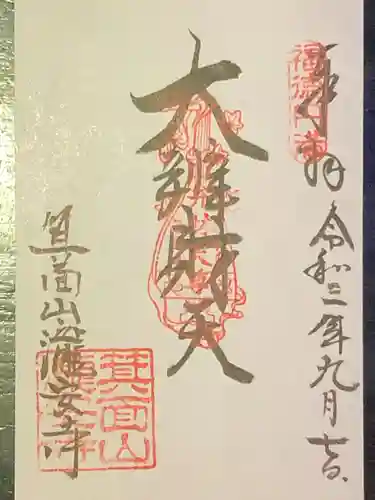 奉拝
令和三年九月七日
大辨財天
箕面山瀧安寺
箕面山